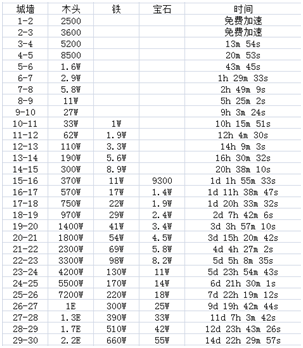 城墙 木头 铁 宝石 时间
1-2 2500 免费加速
2-3 3600 免费加速
3-4 5200 13m 54s
4-5 8500 20m 53s
5-6 1.6W 43m 45s
6-7 2.9W 1h 29m 33s
7-8 5.8W 2h 49m 9s
8-9 11W 5h 25m 2s
9-10 27W 9h 3m 24s
10-11 33W 1W 10h 15m 51s
11-12 62W 1.9W 12h 4m 30s
12-13 110W 3.3W 14h 9m 3s
13-14 190W 5.6W 16h 30m 32s
14-15 300W 8.9W 20h 38m 10s
15-16 370W 11W 9300 1d 1h 55m 33s
16-17 570W 17W 1.4W 1d 11h 38m 47s
17-18 750W 22W 1.9W 1d 20h 33m 32s
18-19 970W 29W 2.4W 2d 7h 42m 6s
19-20 1400W 41W 3.4W 3d 3h 57m 10s
20-21 1800W 54W 4.5W 3d 15h 20m 42s
21-22 2300W 69W 5.8W 4d 4h 27m 2s
22-23 3300W 98W 8.2W 5d 5h 8m 35s
23-24 4200W 130W 11W 5d 23h 54m 43s
24-25 5500W 170W 14W 6d 21h 30m 1s
25-26 7200W 220W 18W 7d 22h 19m 12s
26-27 1E 300W 25W 9d 19h 42m 44s
27-28 1.3E 390W 33W 11d 7h 3m 42s
28-29 1.7E 510W 42W 12d 23h 43m 26s
29-30 2.2E 660W 55W 14d 22h 29m 57s